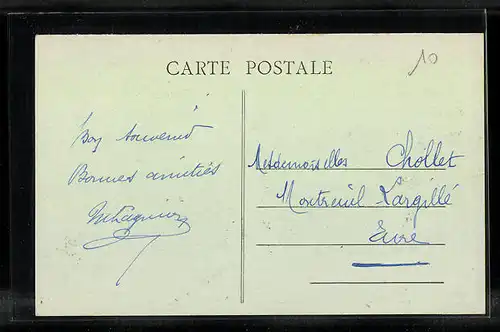 CARTE POSTALE
10
Bon souvenir
Bonnes amitiés
Mesdemoiselles Chollet
Montreuil Largillé
Eure